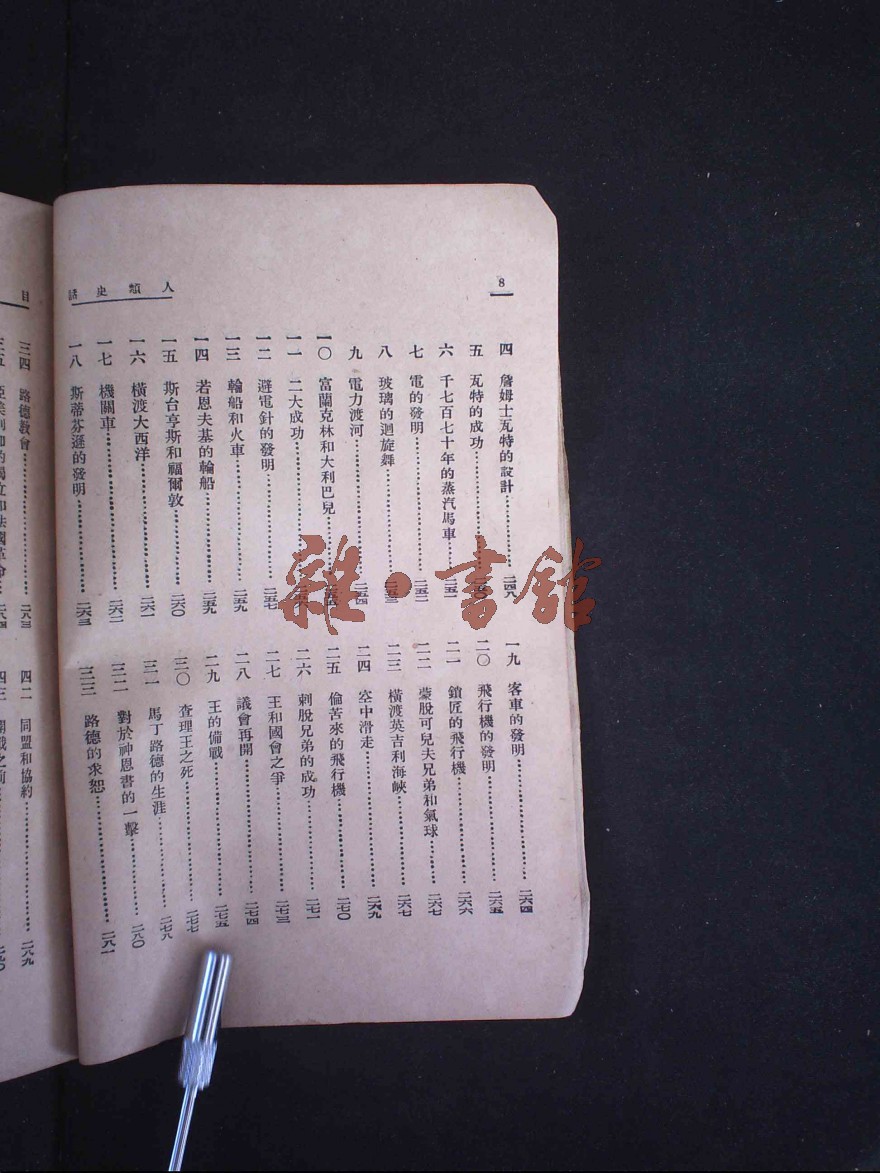 8
人類史話
四 詹姆士瓦特的設計 二四八
五 瓦特的成功 二五〇
六 千七百七十年的蒸汽馬車 二五一
七 電的發明 二五二
八 玻璃的迴旋舞
九 電力渡河 二五四
一〇 富蘭克林和大利巴兒
一一 二大成功
一二 避電針的發明 二五七
一三 輪船和火車 二五九
一四 若恩夫基的輪船 二五九
一五 斯台亨斯和福爾敦 二六〇
一六 橫渡大西洋 二六一
一七 機關車 二六二
一八 斯蒂芬遜的發明 二六三
一九 客車的發明 二六四
二〇 飛行機的發明 二六五
二一 鎖匠的飛行機 二六六
二二 蒙脫可兒夫兄弟和氣球 二六七
二三 橫渡英吉利海峽 二六七
二四 空中滑走 二六九
二五 倫苦來的飛行機 二七〇
二六 刺脫兄弟的成功 二七一
二七 王和國會之爭 二七三
二八 議會再開 二七四
二九 王的備戰 二七五
三〇 查理王之死 二七七
三一 馬丁路德的生涯 二七八
三二 對於神恩書的一擊 二八〇
三三 路德的求恕 二八一
目
三四 路德教會 二八三
四二 同盟和協約 二八九
雜·書館